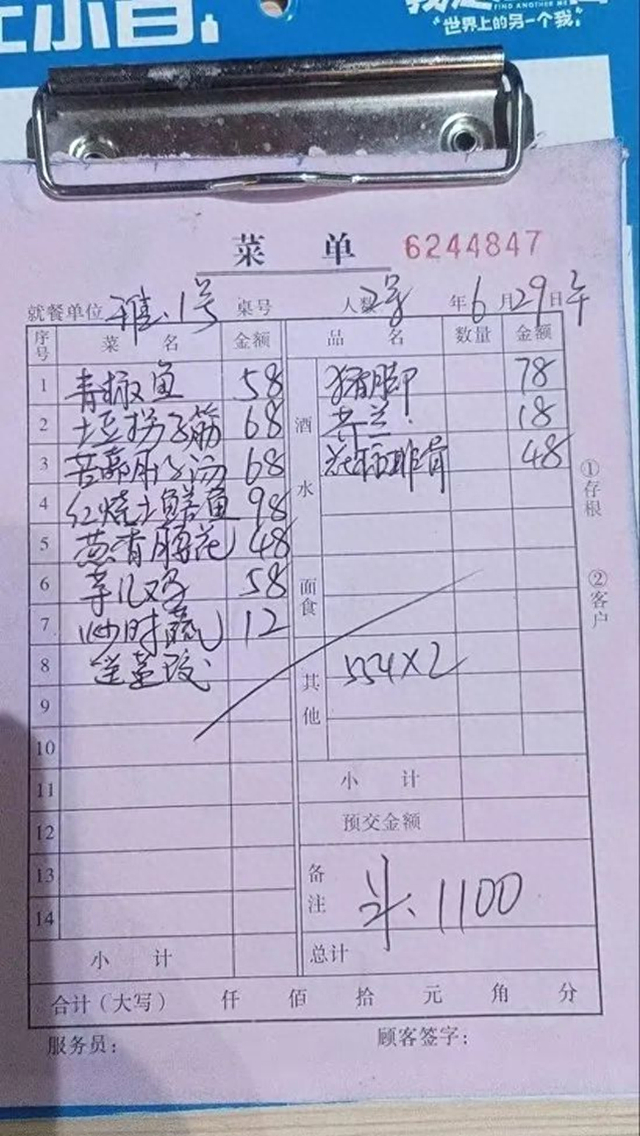 小首
FIND ANOTHER ME
"世界上的另一个我"
菜 单 6244847
就餐单位 雅.1号 桌号 人数 2号 年 6 月 29 日 午
序号 菜 名 金额 品 名 数量 金额
1 青椒鱼 58 猪脚 78
2 土豆拐子筋 68 酒水 18
3 68 排骨 48
4 红烧土鳝鱼 98
5 葱香腰花 48
6 58 面食
7 炒时蔬 12
8 其他 554×2
9
10
11 小 计
12 预交金额
13 备注 1100
14
小 计 总计
合计（大写） 仟 佰 拾 元 角 分
服务员： 顾客签字：
①存根
②客户